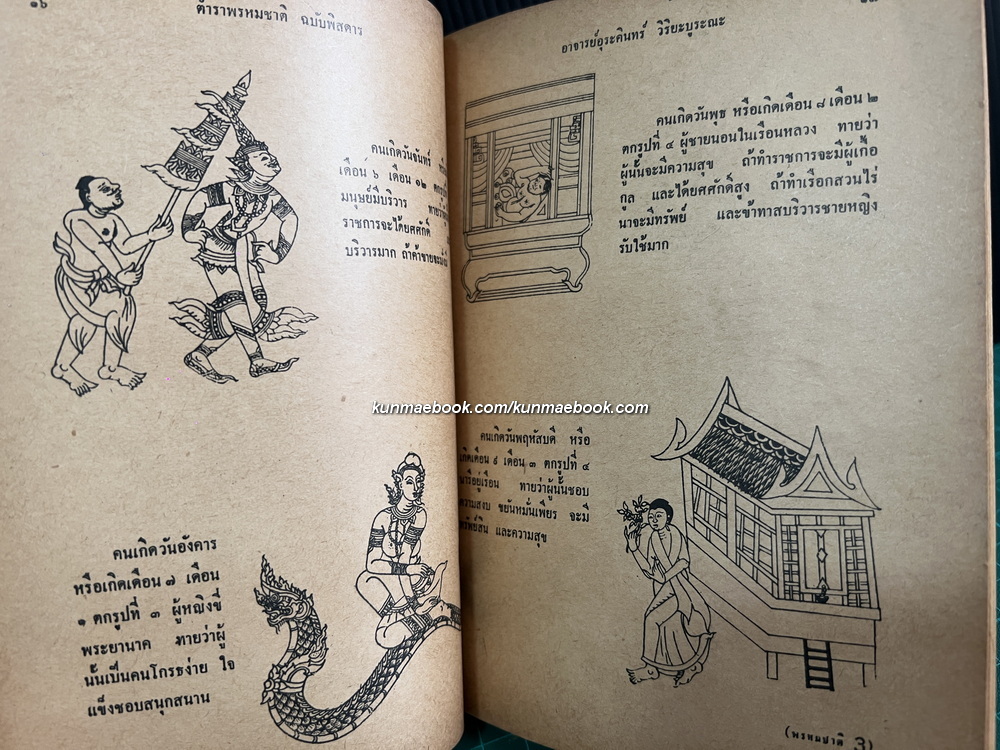 ๑๖
ตำราพรหมชาติ ฉบับพิสดาร
คนเกิดวันจันทร์
เดือน ๖ เดือน ๑๒
มนุษย์มีบริวาร
ราชการจะได้ยศศักดิ์
บริวารมาก ถ้าค้าขายจะ
คนเกิดวันอังคาร
หรือเกิดเดือน ๗ เดือน
๑ ตกรูปที่ ๓ ผู้หญิงขี่
พระยานาค ทายว่าผู้
นั้นเป็นคนโกรธง่าย ใจ
แข็งชอบสนุกสนาน
อาจารย์อุระคินทร์ วิริยะบูรณะ
คนเกิดวันพุธ หรือเกิดเดือน ๘ เดือน ๒
ตกรูปที่ ๔ ผู้ชายนอนในเรือนหลวง ทายว่า
ผู้นั้นจะมีความสุข ถ้าทำราชการจะมีผู้เกื้อ
กูล และได้ยศศักดิ์สูง ถ้าทำเรือกสวนไร่
นาจะมีทรัพย์ และข้าทาสบริวารชายหญิง
รับใช้มาก
kunmaebook.com/kunmaebook.com
คนเกิดวันพฤหัสบดี หรือ
เกิดเดือน ๙ เดือน ๓ ตกรูปที่ ๔
นารีอยู่เรือน ทายว่าผู้นั้นชอบ
ความสงบ ขยันหมั่นเพียร จะมี
ทรัพย์สิน และความสุข
(พรหมชาติ 3)